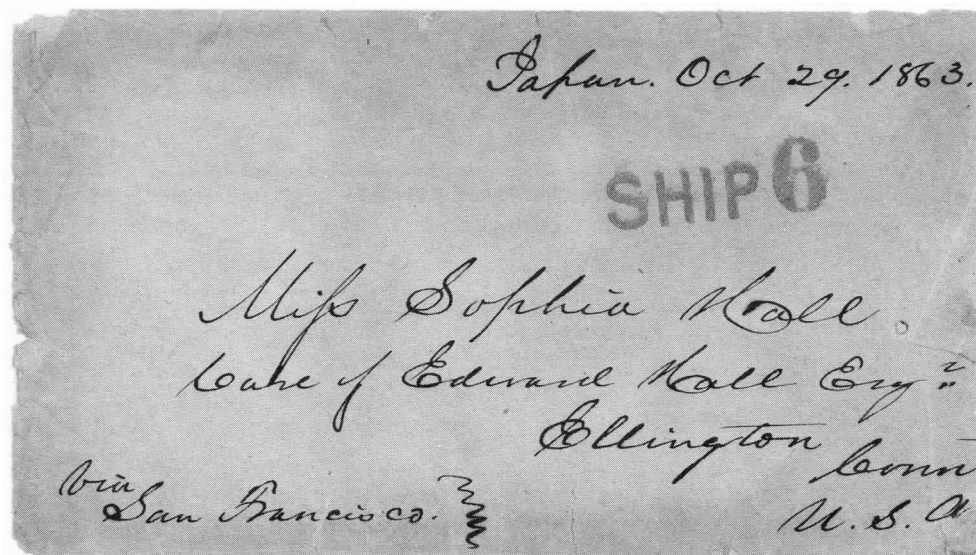 Japan. Oct 29. 1863.
SHIP 6
Miſs Sophia Hall.
Care of Edward Hall Esqr
Ellington
Conn
via
San Francisco.
U. S. A